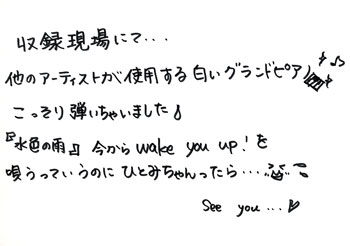 収録現場にて・・・
他のアーティストが使用する白いグランドピアノ
こっそり弾いちゃいました♪
『水色の雨』 今から wake you up! を
唄うっていうのに ひとみちゃんったら・・・・
See you ...